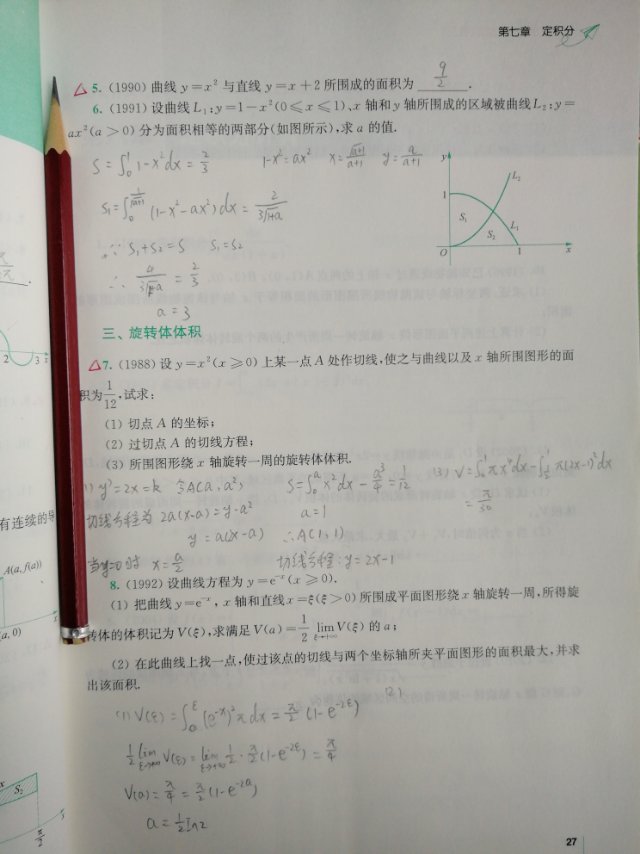 第七章 定积分
△ 5. (1990) 曲线 y=x² 与直线 y=x+2 所围成的面积为 9/2 .
6. (1991) 设曲线 L₁:y=1-x²(0≤x≤1)、x 轴和 y 轴所围成的区域被曲线 L₂:y=
ax²(a>0) 分为面积相等的两部分(如图所示),求 a 的值.
S=∫₀¹ 1-x²dx=2/3 1-x²=ax² x=√(a+1)/(a+1) y=a/(a+1)
y
L₂
1
S₁=∫₀^(1/√(a+1)) (1-x²-ax²)dx=2/(3√(1+a))
S₁
S₂
L₁
O
1
x
∵ S₁+S₂=S S₁=S₂
∴ 4/(3√(1+a))=2/3
a=3
三、旋转体体积
△7. (1988) 设 y=x²(x≥0) 上某一点 A 处作切线,使之与曲线以及 x 轴所围图形的面
积为 1/12,试求:
(1) 切点 A 的坐标;
(2) 过切点 A 的切线方程;
(3) 所围图形绕 x 轴旋转一周的旋转体体积.
(1) y'=2x=k 令A(a,a²) S=∫₀^a x²dx-a³/4=1/12 (3) V=∫₀¹ πx⁴dx-∫_(1/2)^1 π(2x-1)²dx
切线方程为 2a(x-a)=y-a² a=1 =π/30
y=a(2x-a) ∴A(1,1)
当y=0时 x=a/2 切线方程:y=2x-1
8. (1992) 设曲线方程为 y=e⁻ˣ(x≥0).
(1) 把曲线 y=e⁻ˣ, x 轴和直线 x=ξ(ξ>0) 所围成平面图形绕 x 轴旋转一周,所得旋
转体的体积记为 V(ξ),求满足 V(a)=1/2 lim_(ξ→+∞) V(ξ) 的 a;
(2) 在此曲线上找一点,使过该点的切线与两个坐标轴所夹平面图形的面积最大,并求
出该面积.
(1) V(ξ)=∫₀^ξ (e⁻ˣ)²π dx=π/2(1-e^(-2ξ)) (2)
1/2 lim_(ξ→+∞) V(ξ)=lim_(ξ→+∞) 1/2·π/2(1-e^(-2ξ))=π/4
V(a)=π/4=π/2(1-e^(-2a))
a=1/2 ln2
27
2
3
x
有连续的导
A(a, f(a))
(a, 0)
x
S₂
π/2